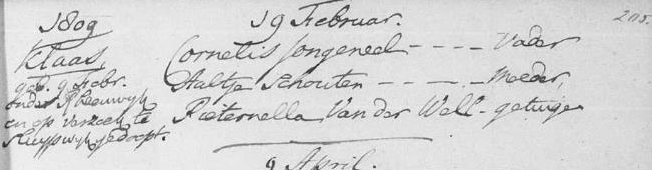 1809 19 Februar. 205.
Klaas Cornelis Jongeneel - - - - Vader
geb. 9 Febr. Aaltje Schouten - - - - Moeder,
onder Rheeuwyk Pieternella Van der Well - getuige
en op verzoek te
Sluypwyk gedoopt.
9 April.